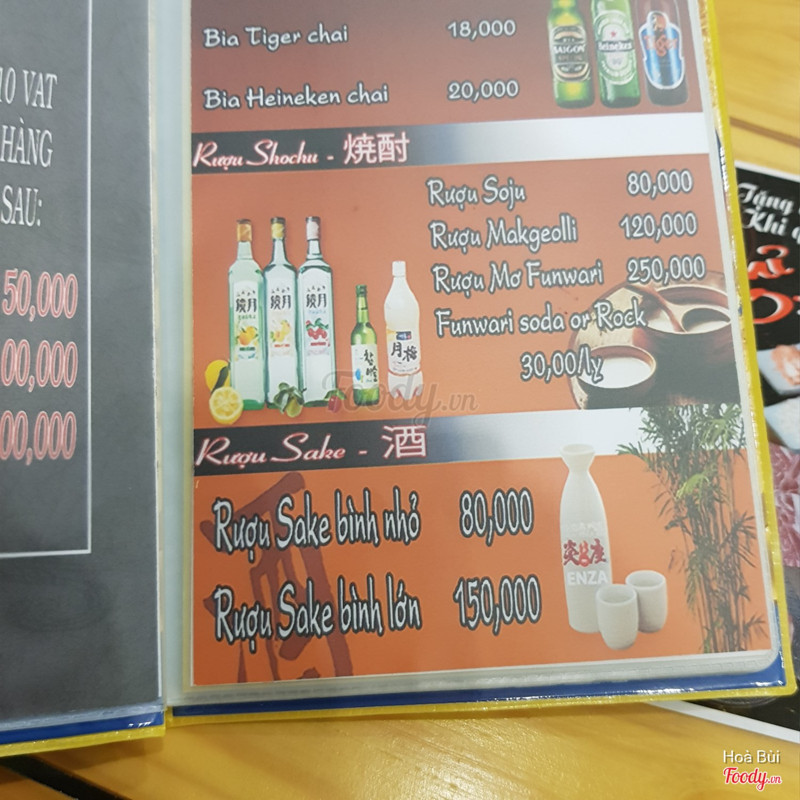 10 VAT
HÀNG
SAU:
50,000
00,000
00,000
Bia Tiger chai 18,000
Bia Heineken chai 20,000
Rượu Shochu - 焼酎
Rượu Soju 80,000
Rượu Makgeolli 120,000
Rượu Mơ Funwari 250,000
Funwari soda or Rock
30,00/ly
鏡月 鏡月 鏡月
月梅
SAIGON
Heineken
Tiger
Rượu Sake - 酒
Rượu Sake bình nhỏ 80,000
Rượu Sake bình lớn 150,000
ENZA
Tặng
Khi
Foody.vn
Hoà Bùi
Foody.vn